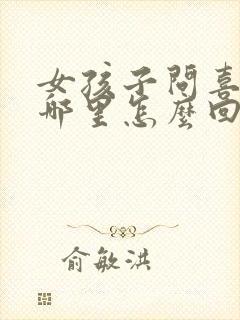 女孩子問喜
哪里怎麼回
俞敏洪